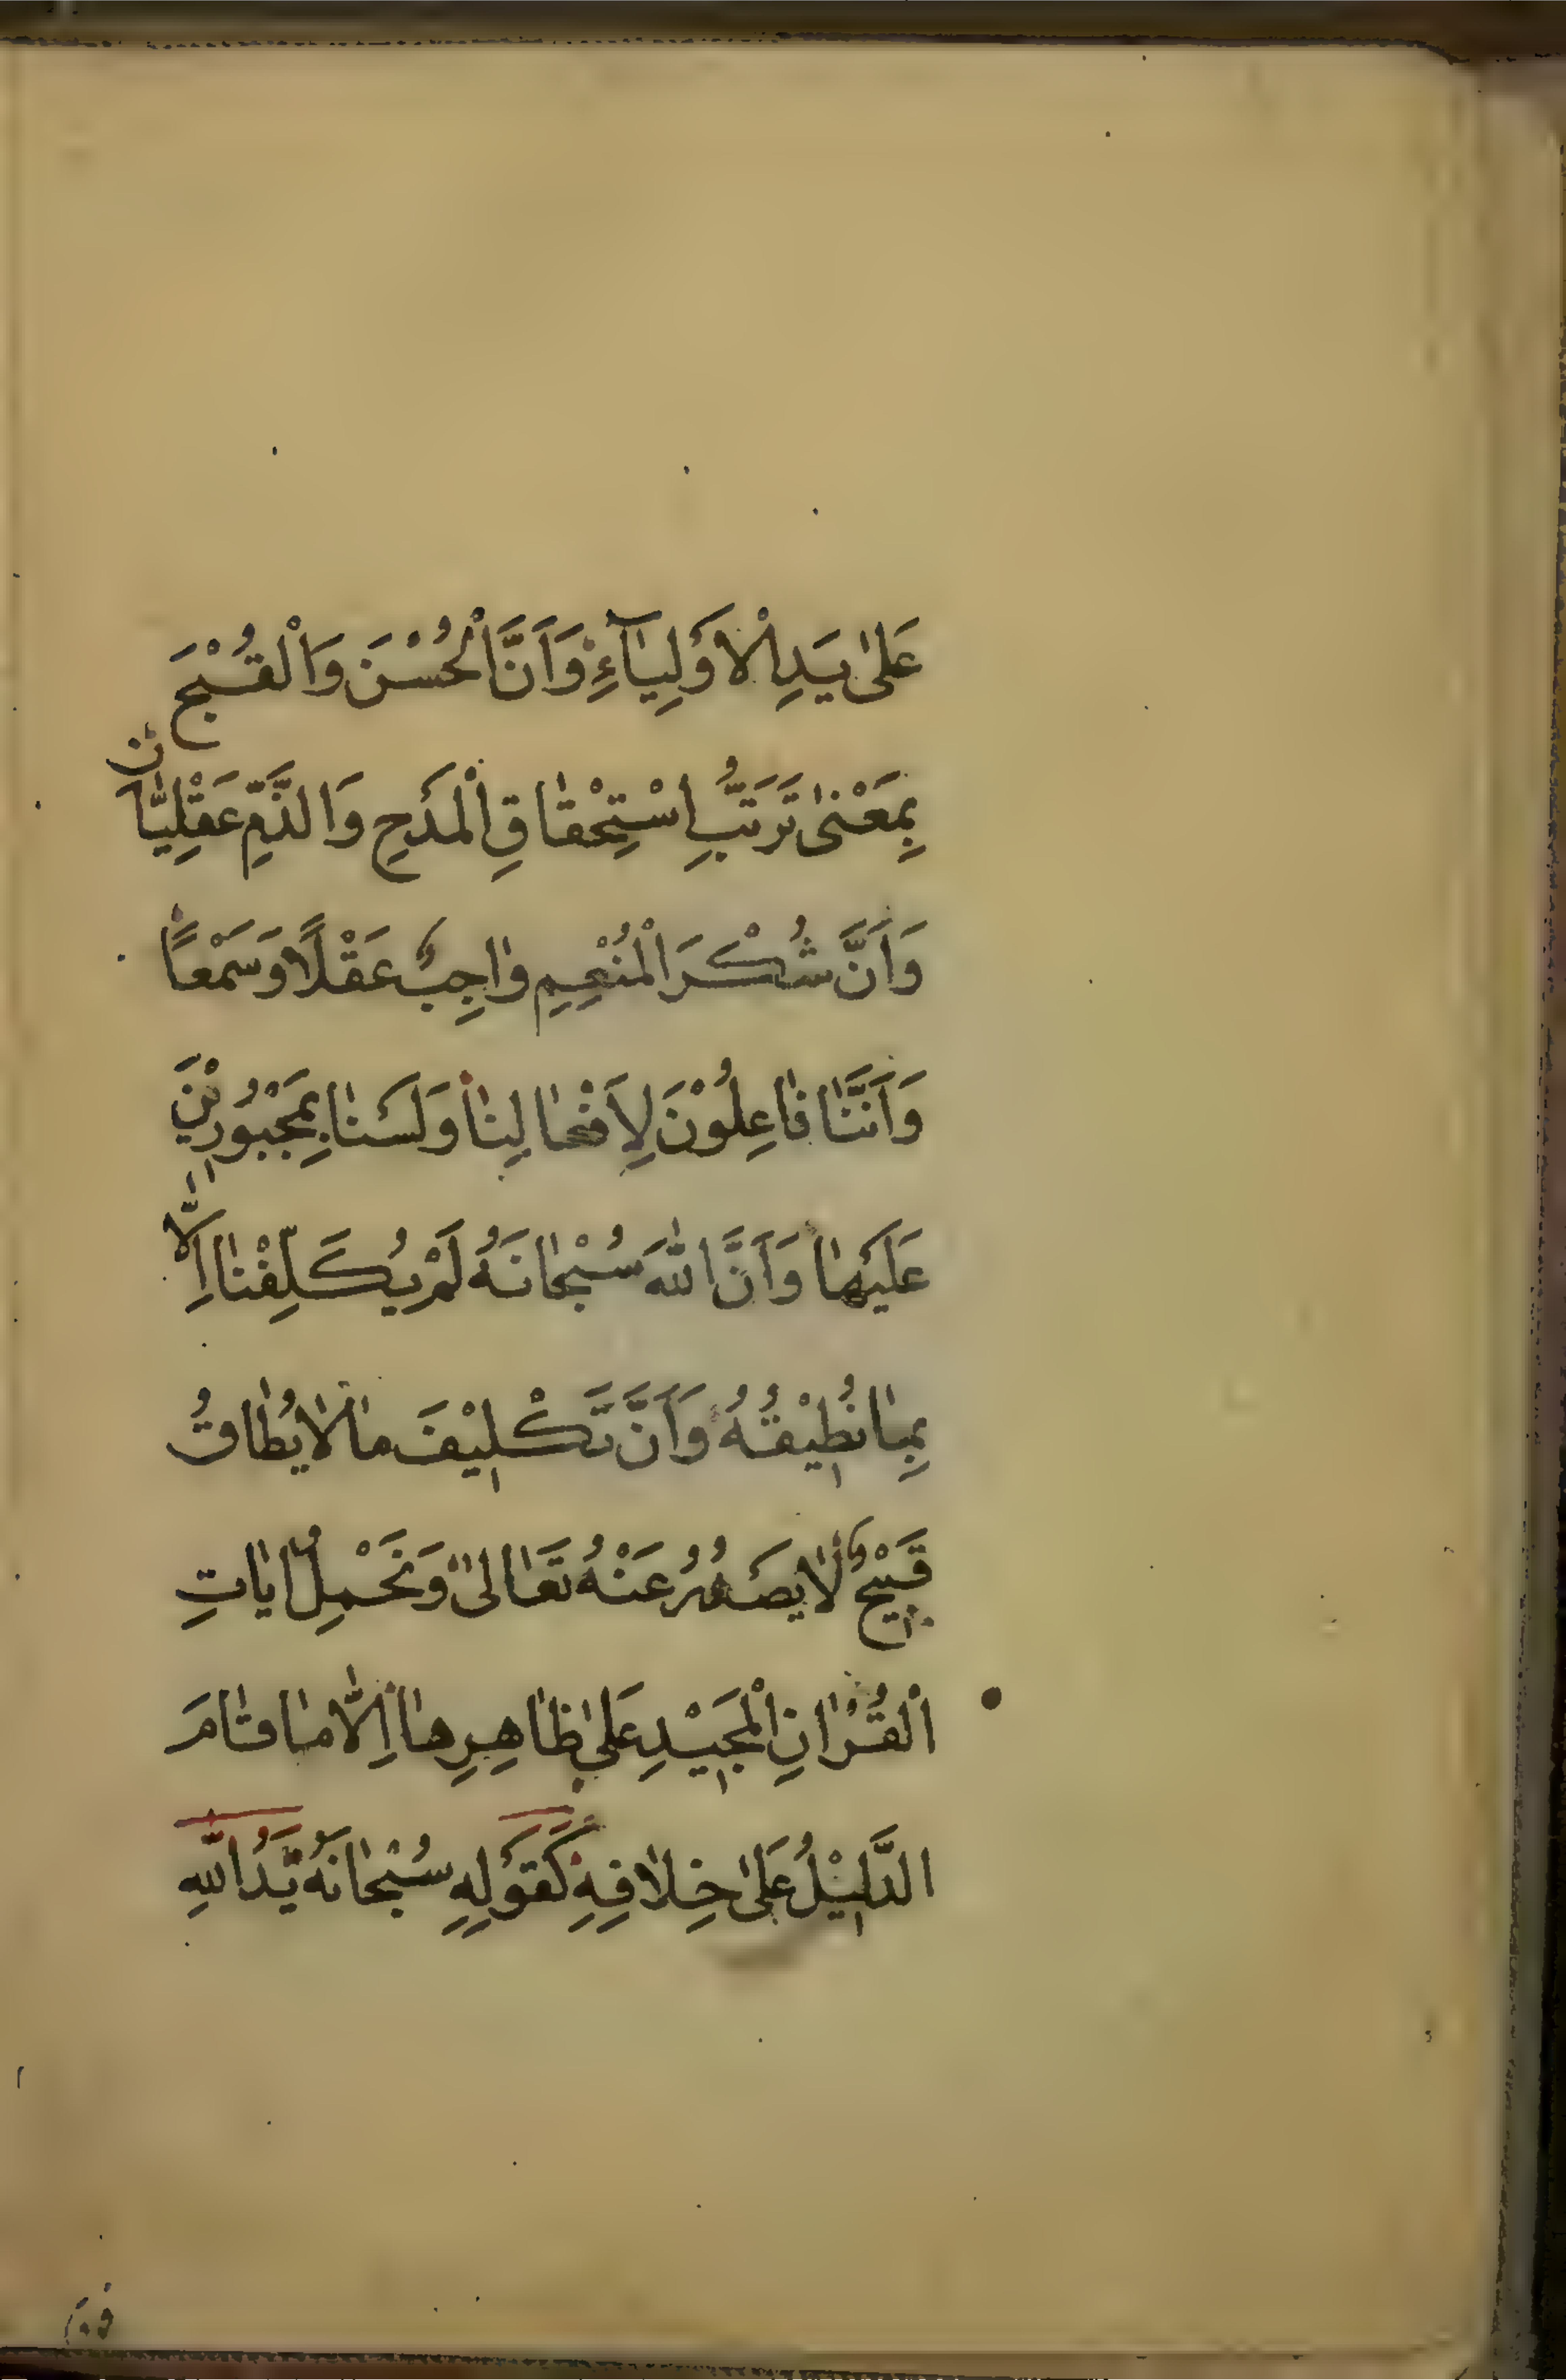 عَلىٰ يَدِ الْاَوْلِيٰآءِ وَاَنَّ الْحُسْنَ وَالْقُبْحَ
بِمَعْنىٰ تَرَتُّبِ اسْتِحْقٰاقِ الْمَدْحِ وَالذَّمِّ عَقْلِيّٰانِ
وَاَنَّ شُكْرَ الْمُنْعِمِ وٰاجِبٌ عَقْلًا وَسَمْعًا
وَاَنَّنٰا فٰاعِلُوْنَ لِاَفْعٰالِنٰا وَلَسْنٰا بِمَجْبُوْرِيْنَ
عَلَيْهٰا وَاَنَّ اللّٰهَ سُبْحٰانَهُ لَمْ يُكَلِّفْنٰا اِلّٰا
بِمٰا نُطِيْقُهُ وَاَنَّ تَكْلِيْفَ مٰا لٰا يُطٰاقُ
قَبِيْحٌ لٰا يَصْدُرُ عَنْهُ تَعٰالىٰ وَنَحْمِلُ اٰيٰاتِ
الْقُرْاٰنِ الْمَجِيْدِ عَلىٰ ظٰاهِرِهٰا اِلّٰا مٰا قٰامَ
الدَّلِيْلُ عَلىٰ خِلٰافِهِ كَقَوْلِهِ سُبْحٰانَهُ يَدُ اللّٰهِ